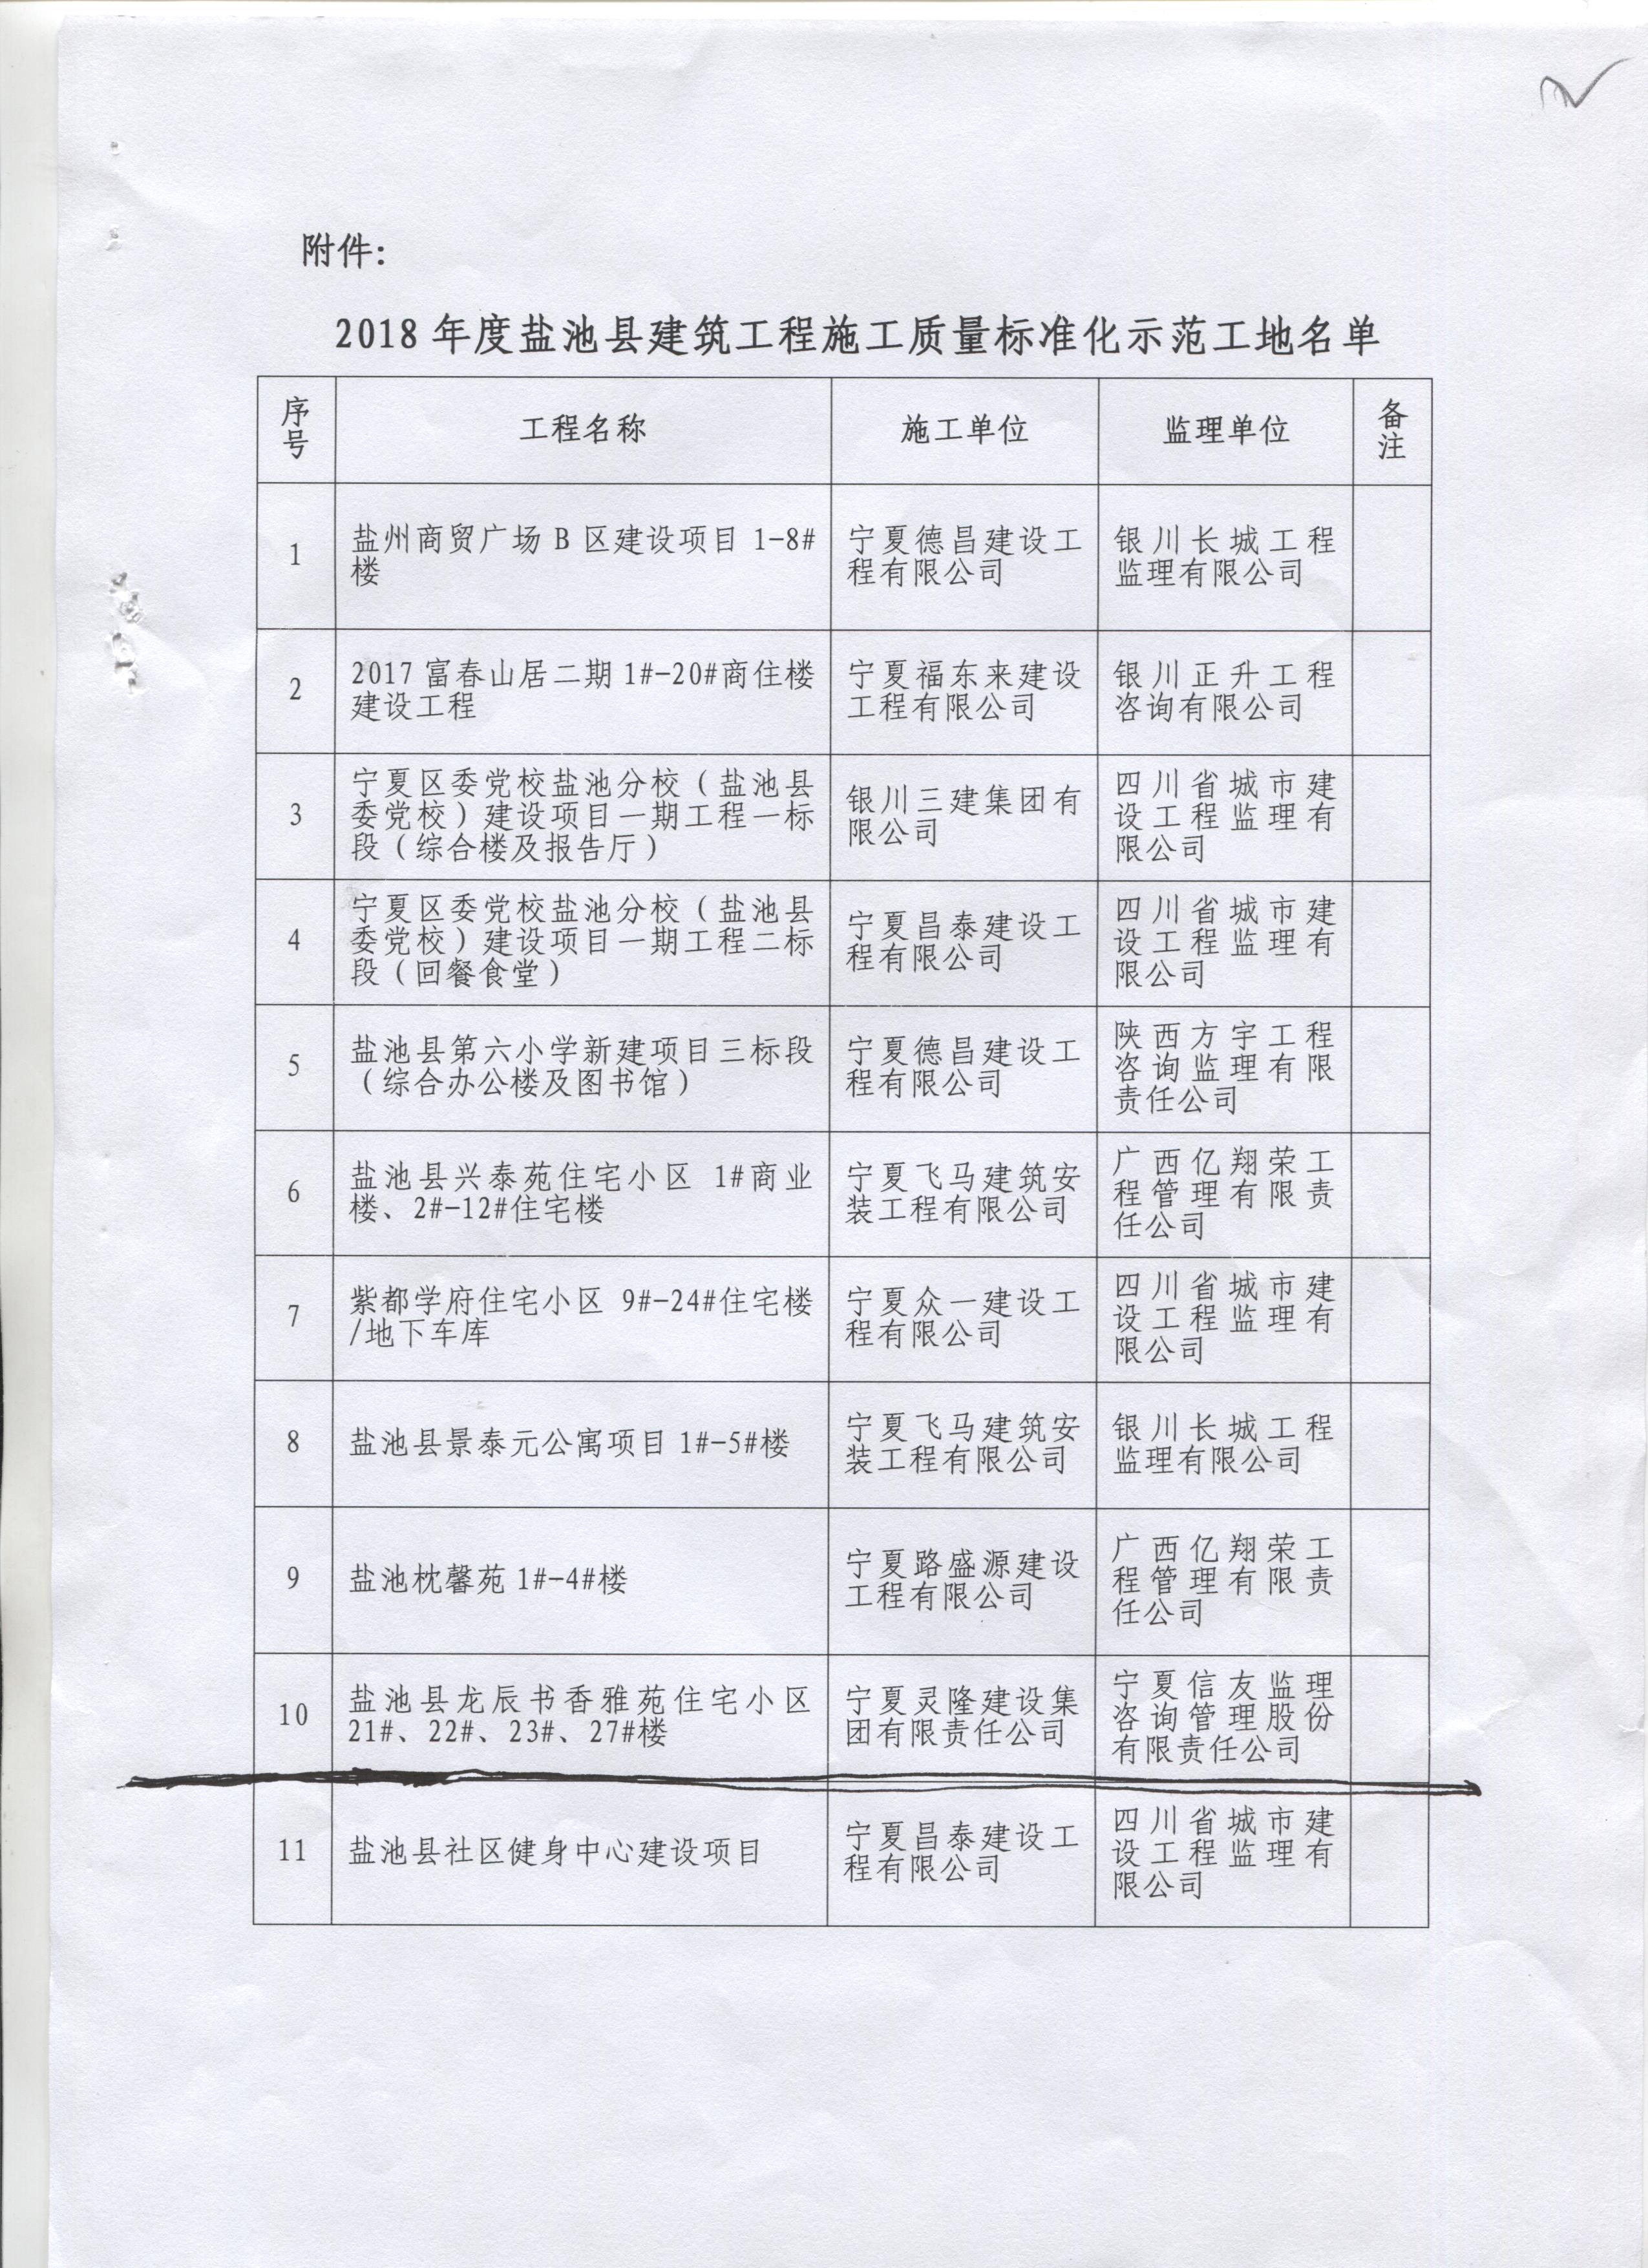 附件：
2018 年度盐池县建筑工程施工质量标准化示范工地名单
序号 工程名称 施工单位 监理单位 备注
1
盐州商贸广场 B 区建设项目 1-8#
楼
宁夏德昌建设工
程有限公司
银川长城工程
监理有限公司
2
2017 富春山居二期 1#-20#商住楼
建设工程
宁夏福东来建设
工程有限公司
银川正升工程
咨询有限公司
3
宁夏区委党校盐池分校（盐池县
委党校）建设项目一期工程一标
段（综合楼及报告厅）
银川三建集团有
限公司
四川省城市建
设工程监理有
限公司
4
宁夏区委党校盐池分校（盐池县
委党校）建设项目一期工程二标
段（回餐食堂）
宁夏昌泰建设工
程有限公司
四川省城市建
设工程监理有
限公司
5
盐池县第六小学新建项目三标段
（综合办公楼及图书馆）
宁夏德昌建设工
程有限公司
陕西方宇工程
咨询监理有限
责任公司
6
盐池县兴泰苑住宅小区 1#商业
楼、2#-12#住宅楼
宁夏飞马建筑安
装工程有限公司
广西亿翔荣工
程管理有限责
任公司
7
紫都学府住宅小区 9#-24#住宅楼
/地下车库
宁夏众一建设工
程有限公司
四川省城市建
设工程监理有
限公司
8
盐池县景泰元公寓项目 1#-5#楼
宁夏飞马建筑安
装工程有限公司
银川长城工程
监理有限公司
9
盐池枕馨苑 1#-4#楼
宁夏路盛源建设
工程有限公司
广西亿翔荣工
程管理有限责
任公司
10
盐池县龙辰书香雅苑住宅小区
21#、22#、23#、27#楼
宁夏灵隆建设集
团有限责任公司
宁夏信友监理
咨询管理股份
有限责任公司
11
盐池县社区健身中心建设项目
宁夏昌泰建设工
程有限公司
四川省城市建
设工程监理有
限公司